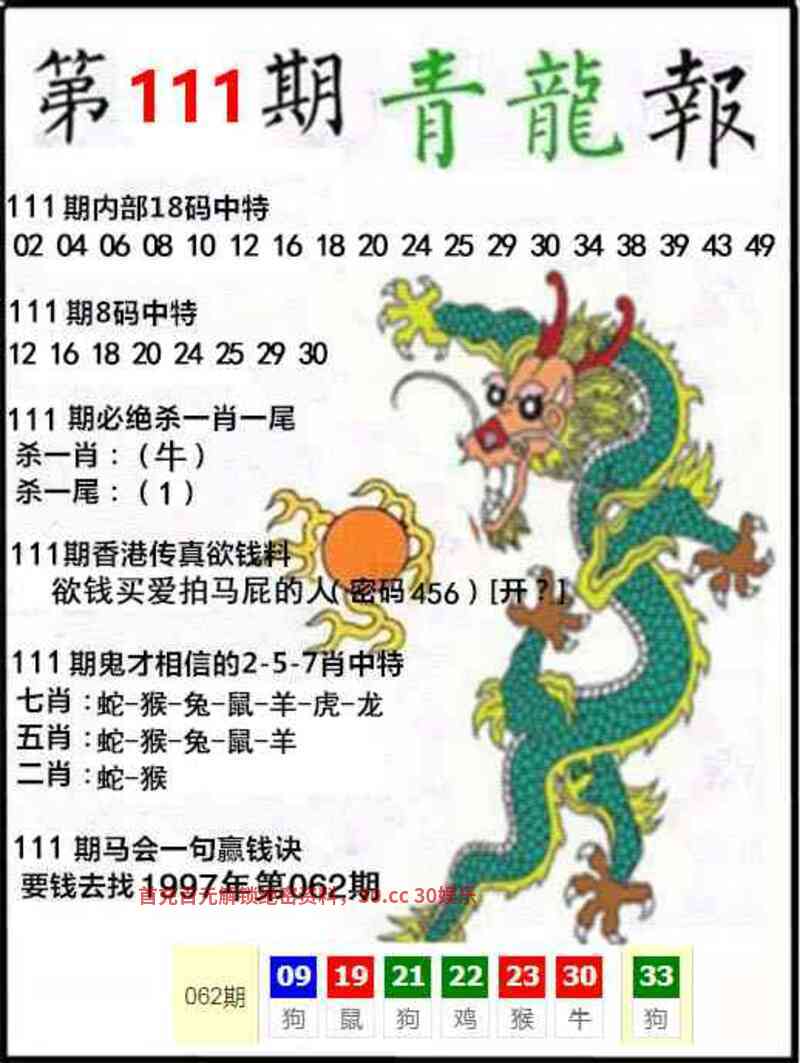 第111期青龍報
111期内部18码中特
02 04 06 08 10 12 16 18 20 24 25 29 30 34 38 39 43 49
111期8码中特
12 16 18 20 24 25 29 30
111期必绝杀一肖一尾
杀一肖：（牛）
杀一尾：（1）
111期香港传真欲钱料
欲钱买爱拍马屁的人(密码456)[开？]
111期鬼才相信的2-5-7肖中特
七肖：蛇-猴-兔-鼠-羊-虎-龙
五肖：蛇-猴-兔-鼠-羊
二肖：蛇-猴
111期马会一句赢钱诀
要钱去找1997年第062期
首充百元解锁绝密资料，30.cc 30娱乐
062期 09 19 21 22 23 30 33
狗 鼠 狗 鸡 猴 牛 狗